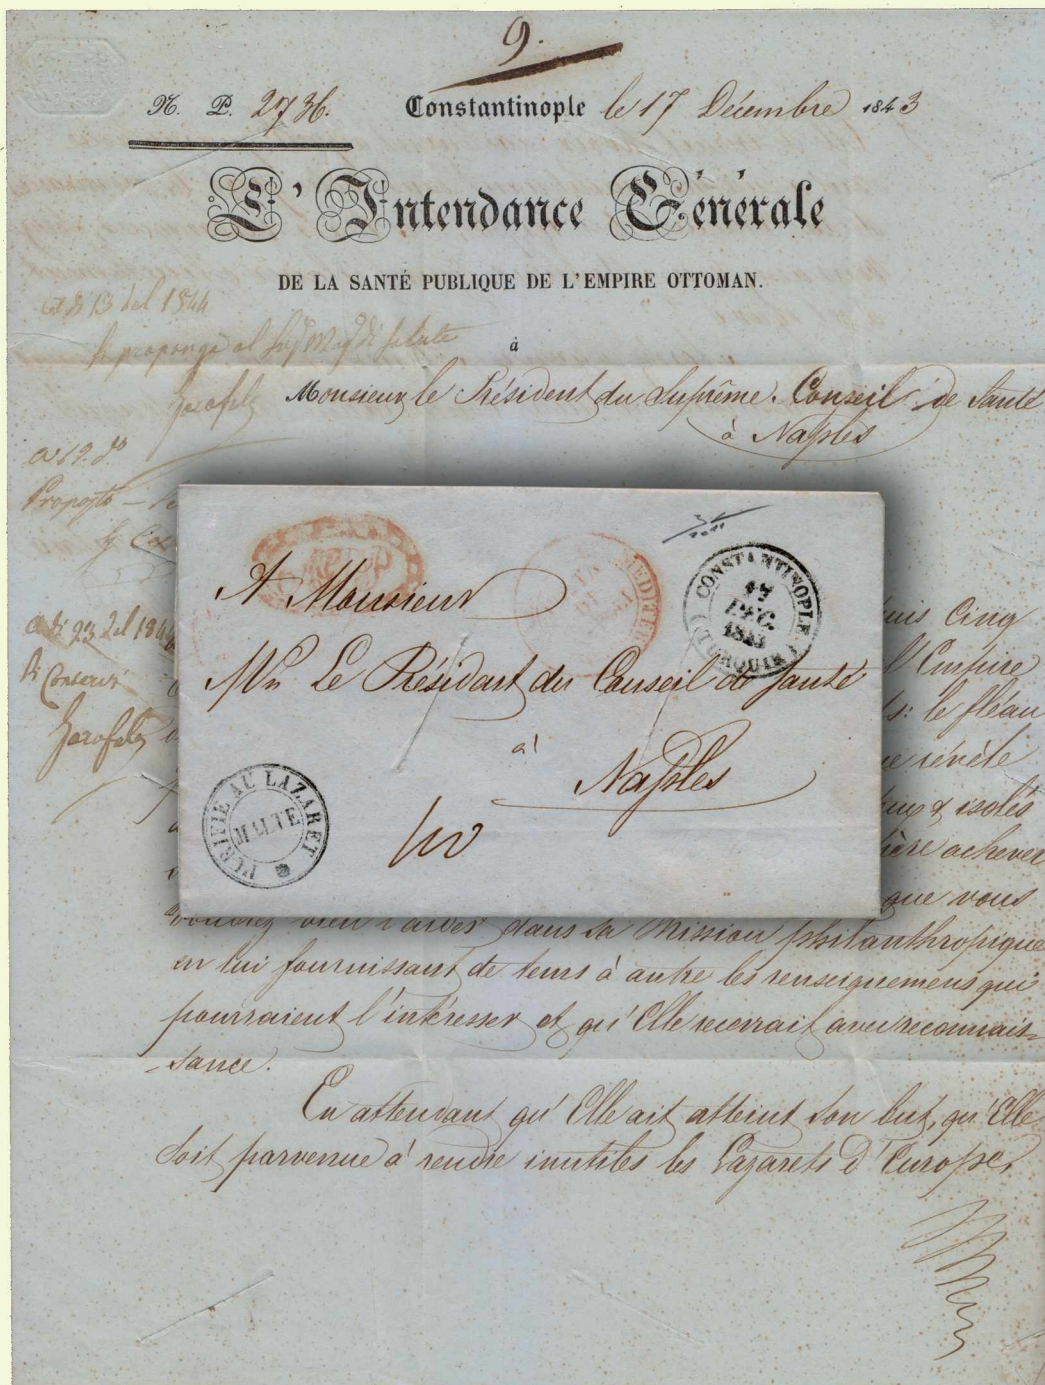 9.
N. P. 2736. Constantinople le 17 Décembre 1843
L'Intendance Générale
DE LA SANTÉ PUBLIQUE DE L'EMPIRE OTTOMAN.
à
Monsieur le Président du Suprême Conseil de Santé
à Naples
a di 13 del 1844
Garofalo
a 19 do
a di 23 del 1844
Garofalo
A Monsieur
Mr Le Président du Conseil de Santé
à
Naples
CONSTANTINOPLE (TURQUIE)
17
DEC.
1843
PURIFIÉ AU LAZARET
MALTE
cinq
l'Empire
le fléau
révèle
isolés
achever
que vous
voudrez bien l'aider dans sa Mission philanthropique
en lui fournissant de tems à autre les renseignemens qui
pourraient l'intéresser et qu'Elle recevrait avec reconnais-
-sance.
En attendant qu'Elle ait atteint son but, qu'Elle
soit parvenue à rendre inutiles les Lazarets d'Europe,